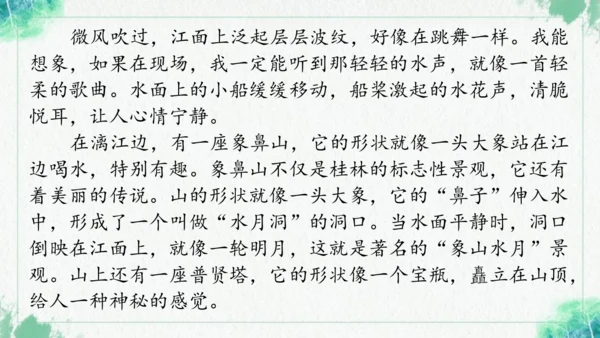 微风吹过，江面上泛起层层波纹，好像在跳舞一样。我能
想象，如果在现场，我一定能听到那轻轻的水声，就像一首轻
柔的歌曲。水面上的小船缓缓移动，船桨激起的水花声，清脆
悦耳，让人心情宁静。
在漓江边，有一座象鼻山，它的形状就像一头大象站在江
边喝水，特别有趣。象鼻山不仅是桂林的标志性景观，它还有
着美丽的传说。山的形状就像一头大象，它的“鼻子”伸入水
中，形成了一个叫做“水月洞”的洞口。当水面平静时，洞口
倒映在江面上，就像一轮明月，这就是著名的“象山水月”景
观。山上还有一座普贤塔，它的形状像一个宝瓶，矗立在山顶，
给人一种神秘的感觉。